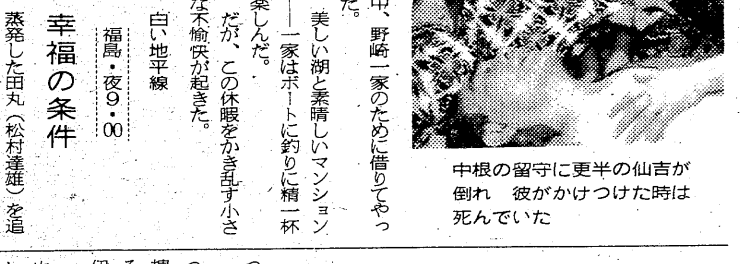 中根の留守に更半の仙吉が
倒れ　彼がかけつけた時は
死んでいた
中、野崎一家のために借りてやっ
た。
美しい湖と素晴しいマンション
――一家はボートに釣りに精一杯
楽しんだ。
だが、この休暇をかき乱す小さ
な不愉快が起きた。
白い地平線
福島・夜9・00
幸福の条件
蒸発した田丸（松村達雄）を追